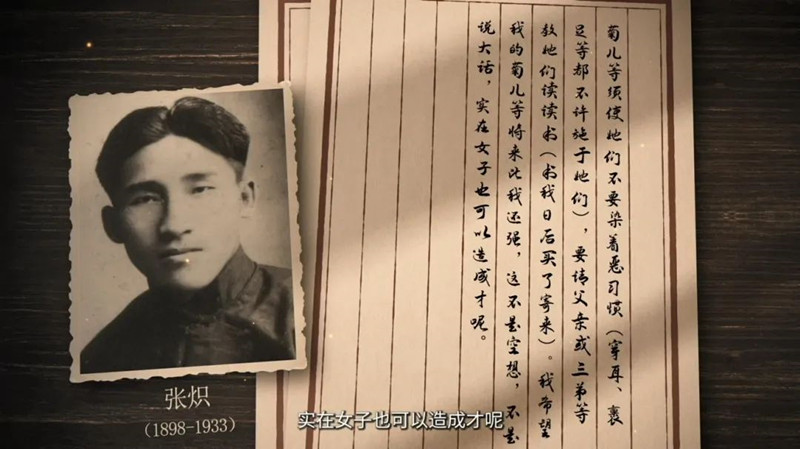 菊儿等须使她们不要染着恶习惯（穿耳、裹
足等都不许施于她们），要请父亲或三弟等
教她们读读书（书我日后买了寄来）。我希望
我的菊儿等将来比我还强，这不是空想，不是
说大话，实在女子也可以造成才呢。
张炽
（1898-1933）
实在女子也可以造成才呢